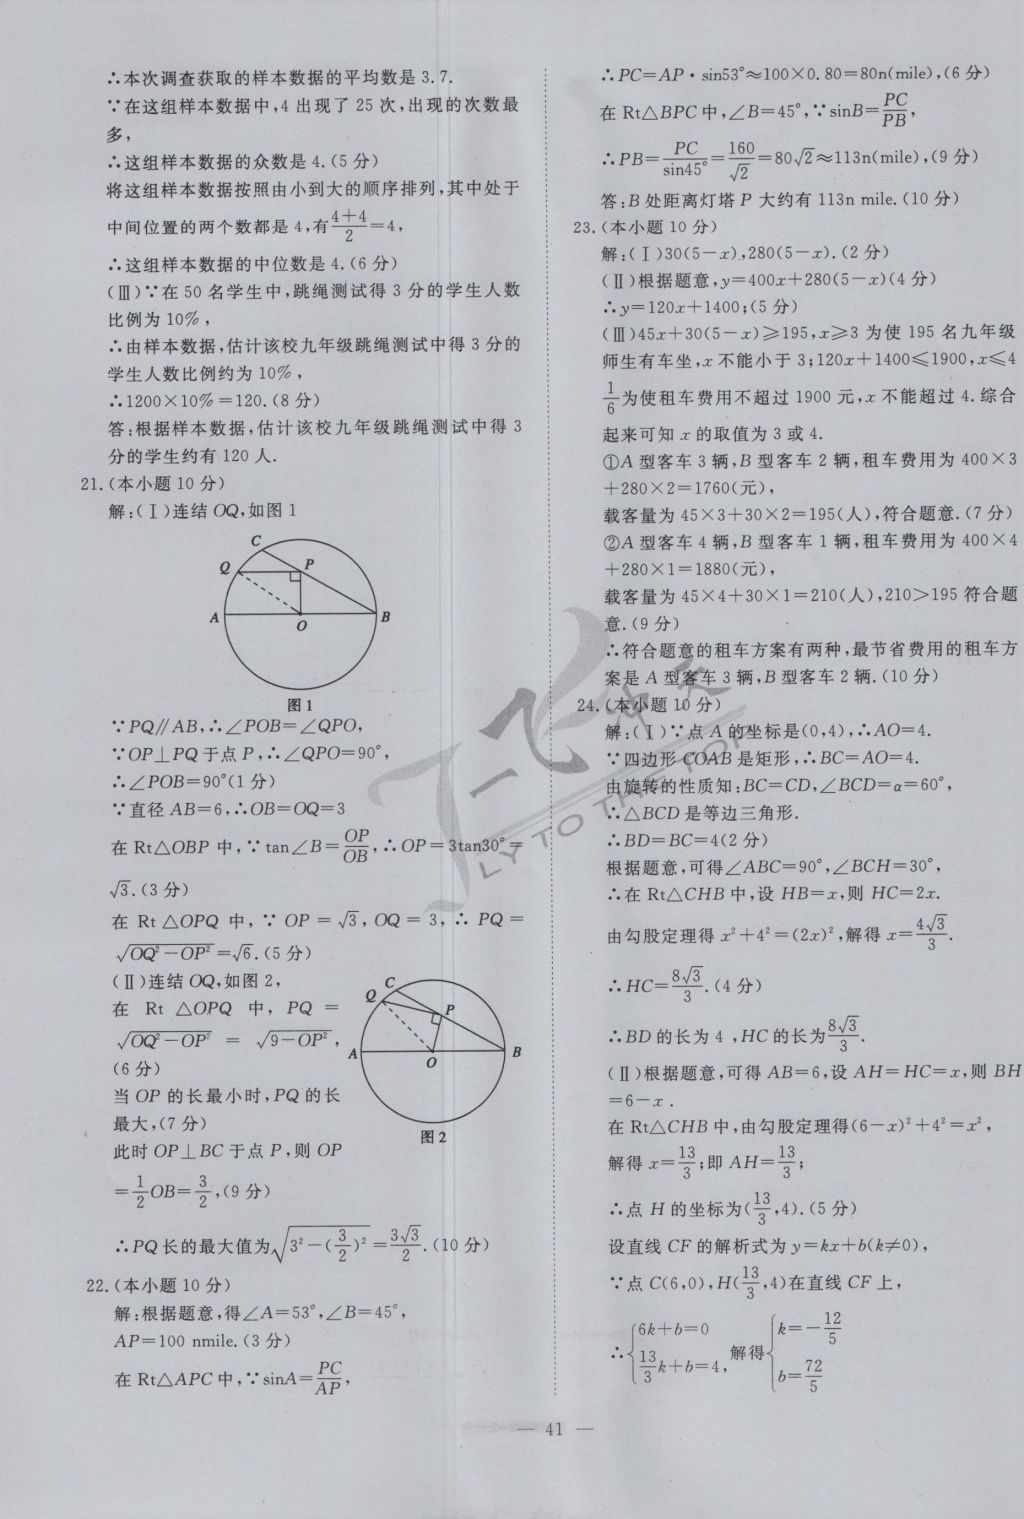 ∴本次调查获取的样本数据的平均数是 3.7.
∵在这组样本数据中,4 出现了 25 次,出现的次数最
多,
∴这组样本数据的众数是 4.(5 分)
将这组样本数据按照由小到大的顺序排列,其中处于
中间位置的两个数都是 4,有\frac{4+4}{2}=4,
∴这组样本数据的中位数是 4.(6 分)
(Ⅲ)∵在 50 名学生中,跳绳测试得 3 分的学生人数
比例为 10%,
∴由样本数据,估计该校九年级跳绳测试中得 3 分的
学生人数比例约为 10%,
∴1200×10%=120.(8 分)
答:根据样本数据,估计该校九年级跳绳测试中得 3
分的学生约有 120 人.
21.(本小题 10 分)
解:(Ⅰ)连结 OQ,如图 1
C
Q
P
A
O
B
图 1
∵PQ∥AB,∴∠POB=∠QPO,
∵OP⊥PQ 于点 P,∴∠QPO=90°,
∴∠POB=90°(1 分)
∵直径 AB=6,∴OB=OQ=3
在 Rt△OBP 中,∵tan∠B=\frac{OP}{OB},∴OP=3tan30°=
√3.(3 分)
在 Rt △OPQ 中, ∵ OP = √3, OQ = 3, ∴ PQ =
√(OQ²-OP²)=√6.(5 分)
(Ⅱ)连结 OQ,如图 2,
在 Rt △OPQ 中, PQ =
√(OQ²-OP²) = √(9-OP²),
(6 分)
当 OP 的长最小时,PQ 的长
最大,(7 分)
此时 OP⊥BC 于点 P,则 OP
=\frac{1}{2}OB=\frac{3}{2},(9 分)
C
Q
P
A
O
B
图 2
∴PQ 长的最大值为√(3²-(\frac{3}{2})²)=\frac{3√3}{2}.(10 分)
22.(本小题 10 分)
解:根据题意,得∠A=53°,∠B=45°,
AP=100 nmile.(3 分)
在 Rt△APC 中,∵sinA=\frac{PC}{AP},
∴PC=AP·sin53°≈100×0.80=80n(mile),(6 分)
在 Rt△BPC 中,∠B=45°,∵sinB=\frac{PC}{PB},
∴PB=\frac{PC}{sin45°}=\frac{160}{√2}=80√2≈113n(mile),(9 分)
答:B 处距离灯塔 P 大约有 113n mile.(10 分)
23.(本小题 10 分)
解:(Ⅰ)30(5-x),280(5-x).(2 分)
(Ⅱ)根据题意,y=400x+280(5-x)(4 分)
∴y=120x+1400;(5 分)
(Ⅲ)45x+30(5-x)≥195,x≥3 为使 195 名九年级
师生有车坐,x 不能小于 3;120x+1400≤1900,x≤4
\frac{1}{6}为使租车费用不超过 1900 元,x 不能超过 4.综合
起来可知 x 的取值为 3 或 4.
①A 型客车 3 辆,B 型客车 2 辆,租车费用为 400×3
+280×2=1760(元),
载客量为 45×3+30×2=195(人),符合题意.(7 分)
②A 型客车 4 辆,B 型客车 1 辆,租车费用为 400×4
+280×1=1880(元),
载客量为 45×4+30×1=210(人),210>195 符合题
意.(9 分)
∴符合题意的租车方案有两种,最节省费用的租车方
案是 A 型客车 3 辆,B 型客车 2 辆.(10 分)
24.(本小题 10 分)
解:(Ⅰ)∵点 A 的坐标是(0,4),∴AO=4.
∵四边形 COAB 是矩形,∴BC=AO=4.
由旋转的性质知:BC=CD,∠BCD=α=60°,
∴△BCD 是等边三角形.
∴BD=BC=4(2 分)
根据题意,可得∠ABC=90°,∠BCH=30°,
∴在 Rt△CHB 中,设 HB=x,则 HC=2x.
由勾股定理得 x²+4²=(2x)²,解得 x=\frac{4√3}{3}.
∴HC=\frac{8√3}{3}.(4 分)
∴BD 的长为 4 ,HC 的长为\frac{8√3}{3}.
(Ⅱ)根据题意,可得 AB=6,设 AH=HC=x,则 BH
=6-x .
在 Rt△CHB 中,由勾股定理得(6-x)²+4²=x²,
解得 x=\frac{13}{3};即 AH=\frac{13}{3};
∴点 H 的坐标为(\frac{13}{3},4).(5 分)
设直线 CF 的解析式为 y=kx+b(k≠0),
∵点 C(6,0),H(\frac{13}{3},4)在直线 CF 上,
∴{6k+b=0 \frac{13}{3}k+b=4, 解得{k=-\frac{12}{5} b=\frac{72}{5}
— 41 —
一飞冲天
FLY TO THE TOP